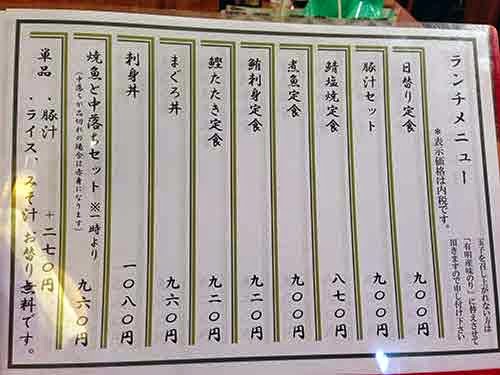 ランチメニュー
＊表示価格は内税です。
玉子を召し上がれない方は
「有明産味のり」に替えさせて
頂きますので申し付け下さい
日替り定食 九〇〇円
豚汁セット 九〇〇円
鯖塩焼定食 八七〇円
煮魚定食 九〇〇円
鮪刺身定食 九二〇円
鰹たたき定食 九二〇円
まぐろ丼 九六〇円
刺身丼 一〇八〇円
焼魚と中落ちセット ※一時より 九六〇円
(中落ちが品切れの場合は赤身になります)
単品 ・豚汁 +二七〇円
・ライス、みそ汁 お替り無料です。